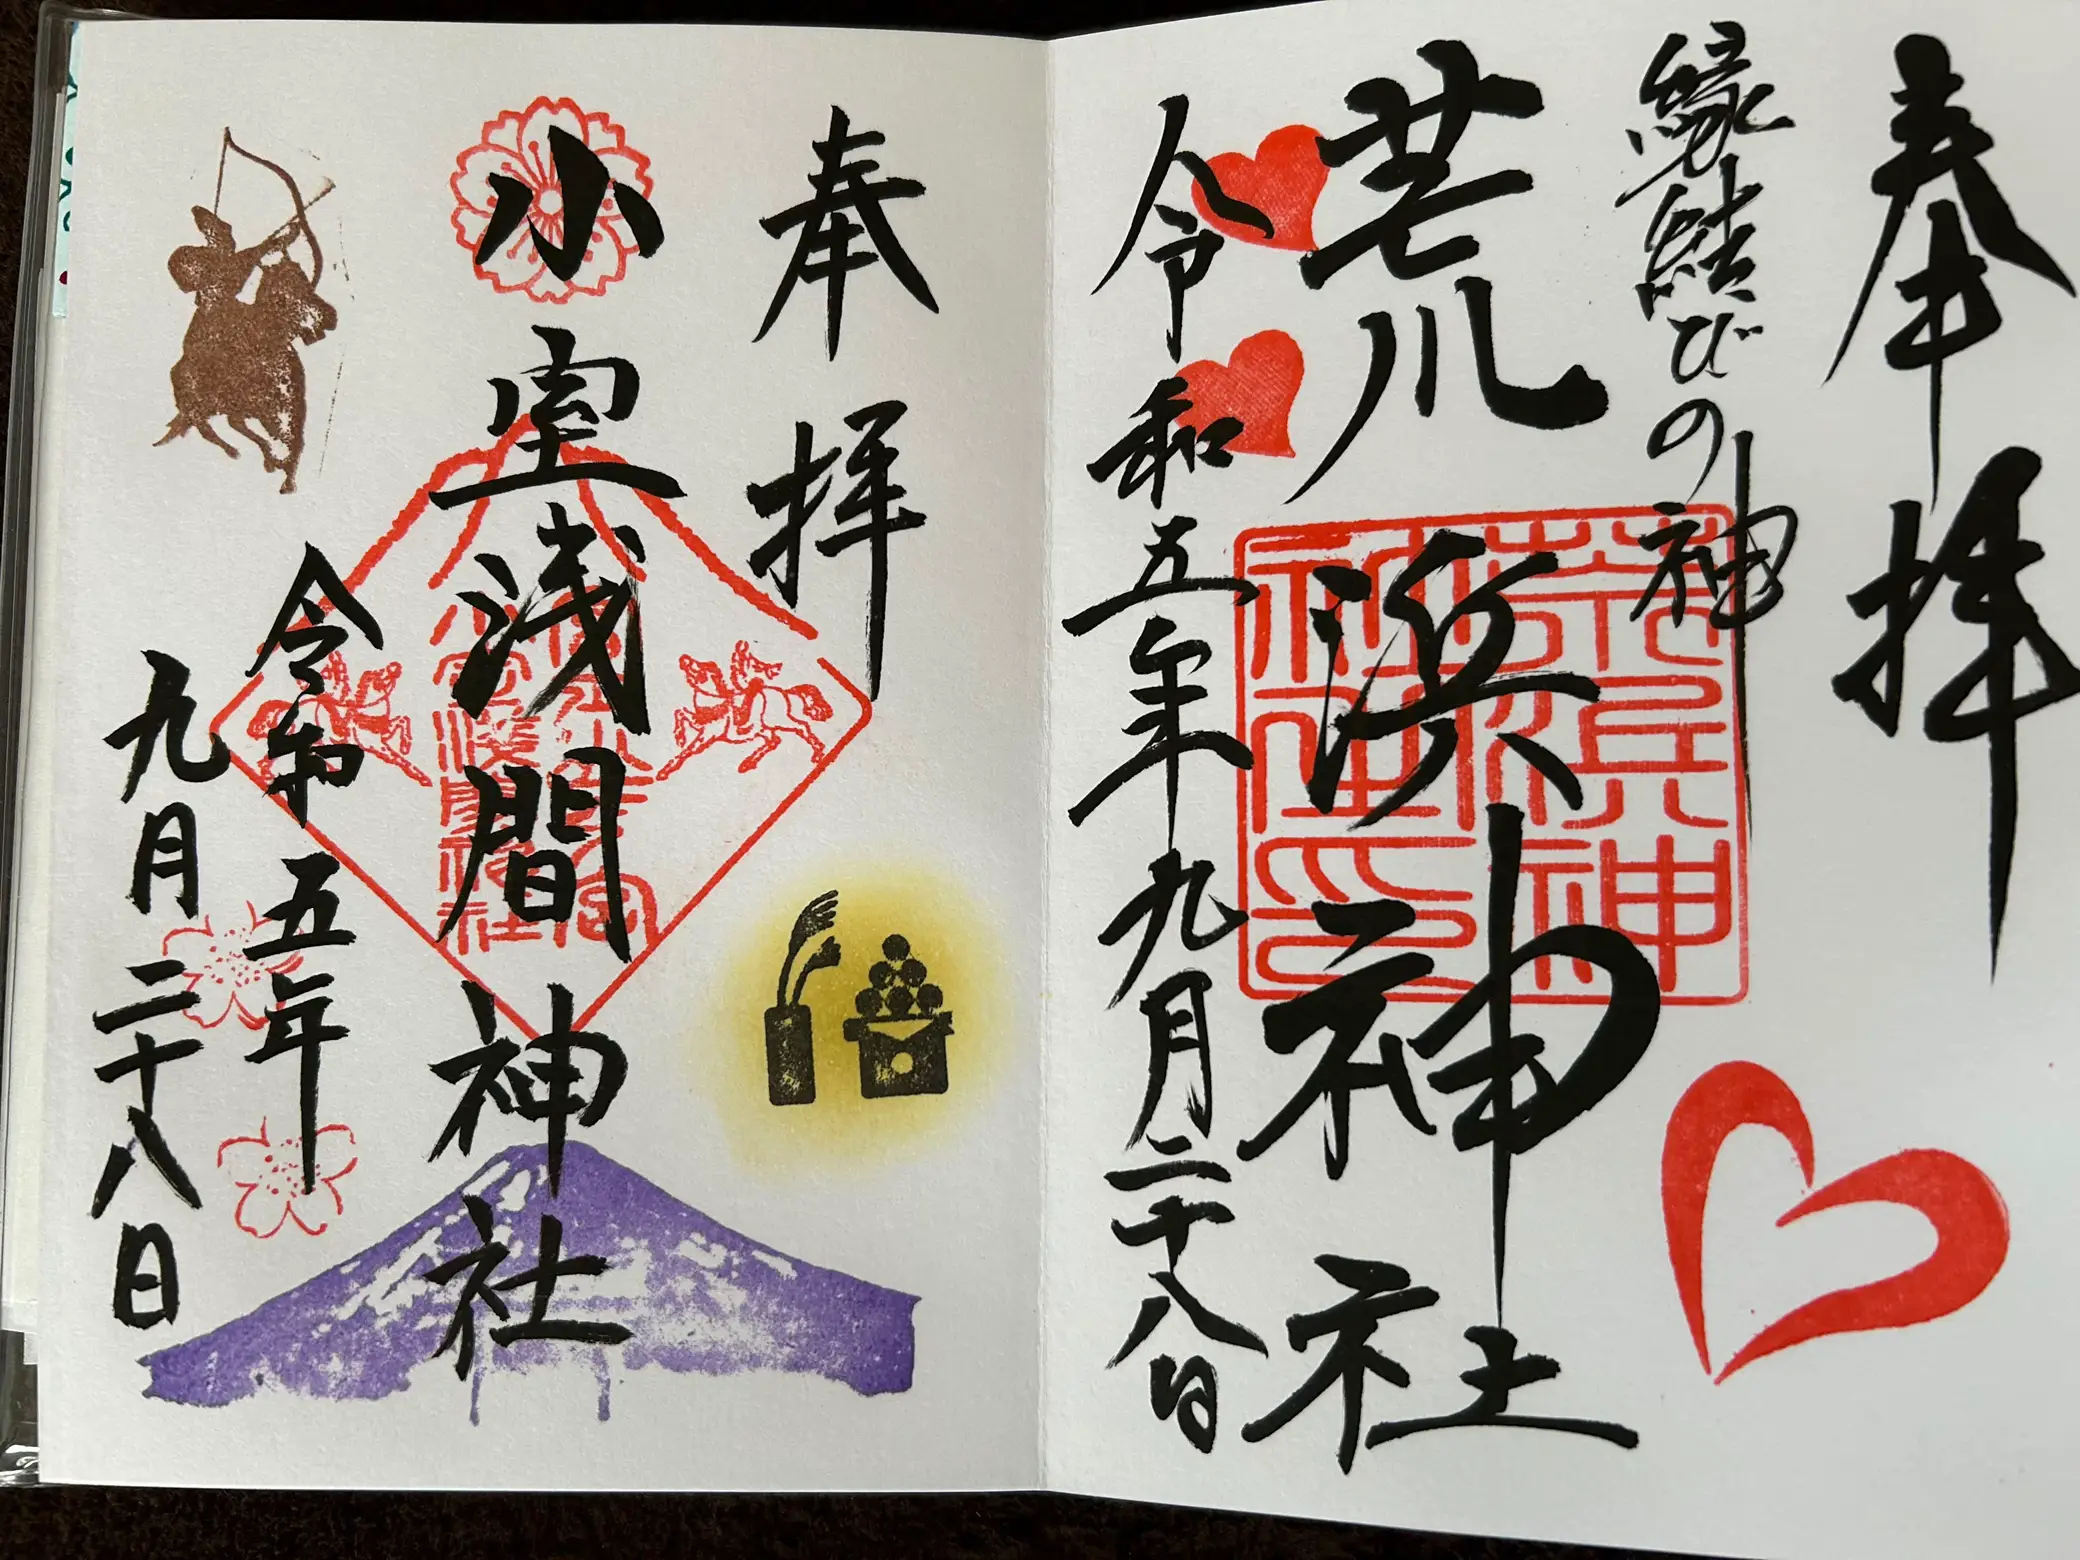 奉拝
縁結びの神
荒浜神社
荒浜神社之印
令和五年九月二十八日
奉拝
小室浅間神社
冨士下宮
小室浅間神社
令和五年
九月二十八日